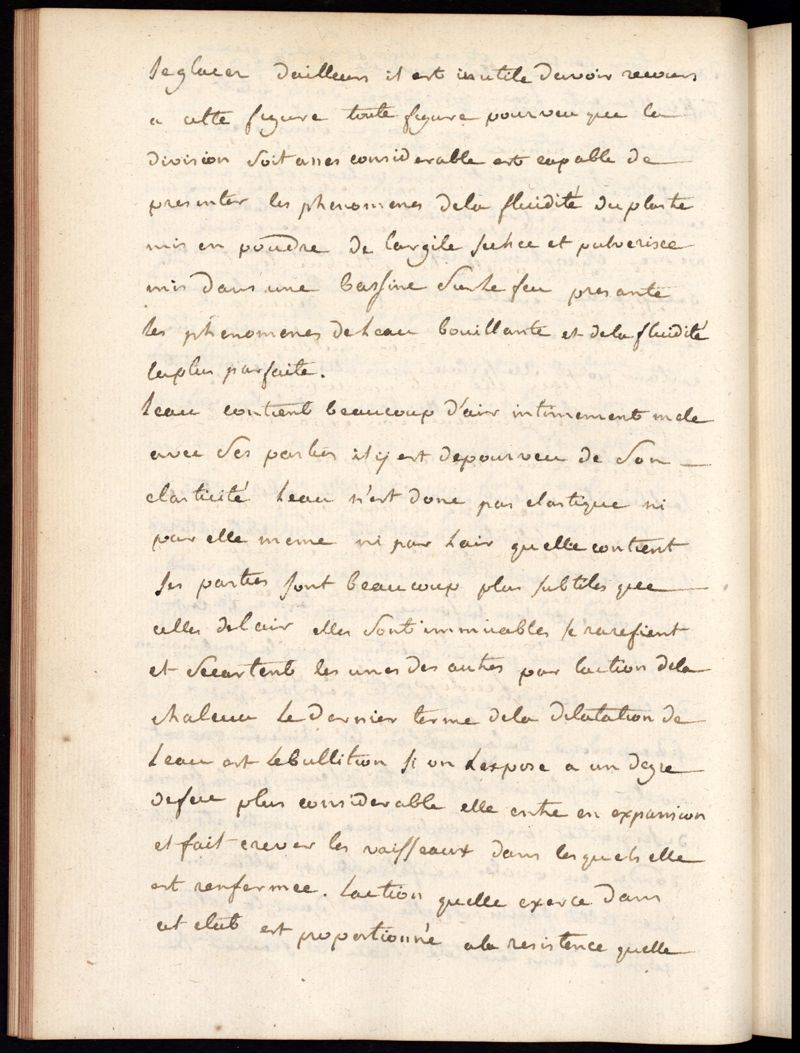 se glacer dailleurs il est inutile davoir recours
a cette figure toute figure pourveu que la
division soit asses considerable est capable de
presenter les phenomenes dela fluidité du platre
mis en poudre de largile sechee et pulverisee
mis dans une bassine sur le feu presente
les phenomenes de leau bouillante et dela fluidité
la plus parfaite.
leau contient beaucoup d'air intimement mele
avec ses parties il y est depourveu de son
elasticité leau n'est donc pas elastique ni
par elle meme ni par lair quelle contient
ses parties sont beaucoup plus subtiles que
celles de lair elles sont immuables se rarefient
et secartent les unes des autres par laction dela
chaleur le dernier terme dela dilatation de
leau est lebullition si on lexpose a un degre
de feu plus considerable elle entre en expansion
et fait crever les vaisseaux dans lesquels elle
est renfermee. laction quelle exerce dans
cet etat est proportionné a la resistence quelle